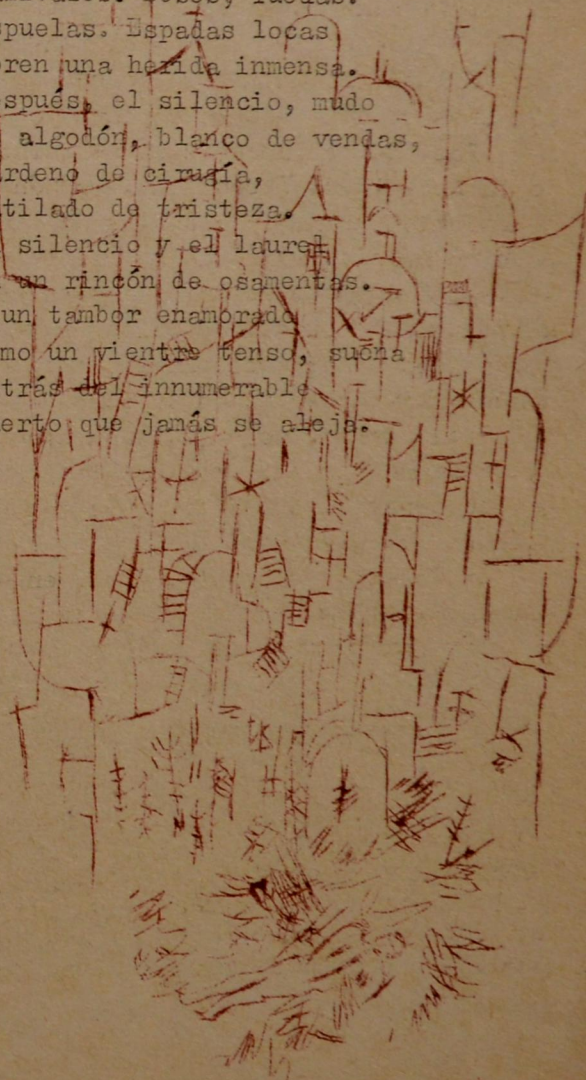 spuelas. Espadas locas
ren una herida inmensa.
spués, el silencio, mudo
algodón, blanco de vendas,
rdeno de cirugía,
tilado de tristeza.
silencio y el laurel
un rincón de osamentas.
un tambor enamorado
mo un vientre tenso, suena
trás del innumerable
erto que jamás se aleja.